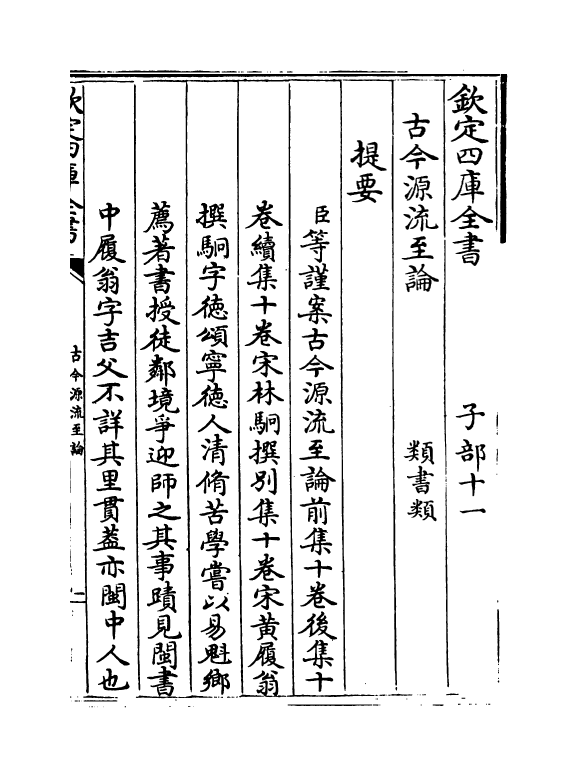 欽定四庫全書　　　子部十一
古今源流至論　　　類書類
提要
臣等謹案古今源流至論前集十卷後集十
卷續集十卷宋林駉撰別集十卷宋黃履翁
撰駉字德頌寧德人清脩苦學嘗以易魁鄉
薦著書授徒鄰境爭迎師之其事蹟見閩書
中履翁字吉父不詳其里貫葢亦閩中人也
欽定四庫全書
古今源流至論